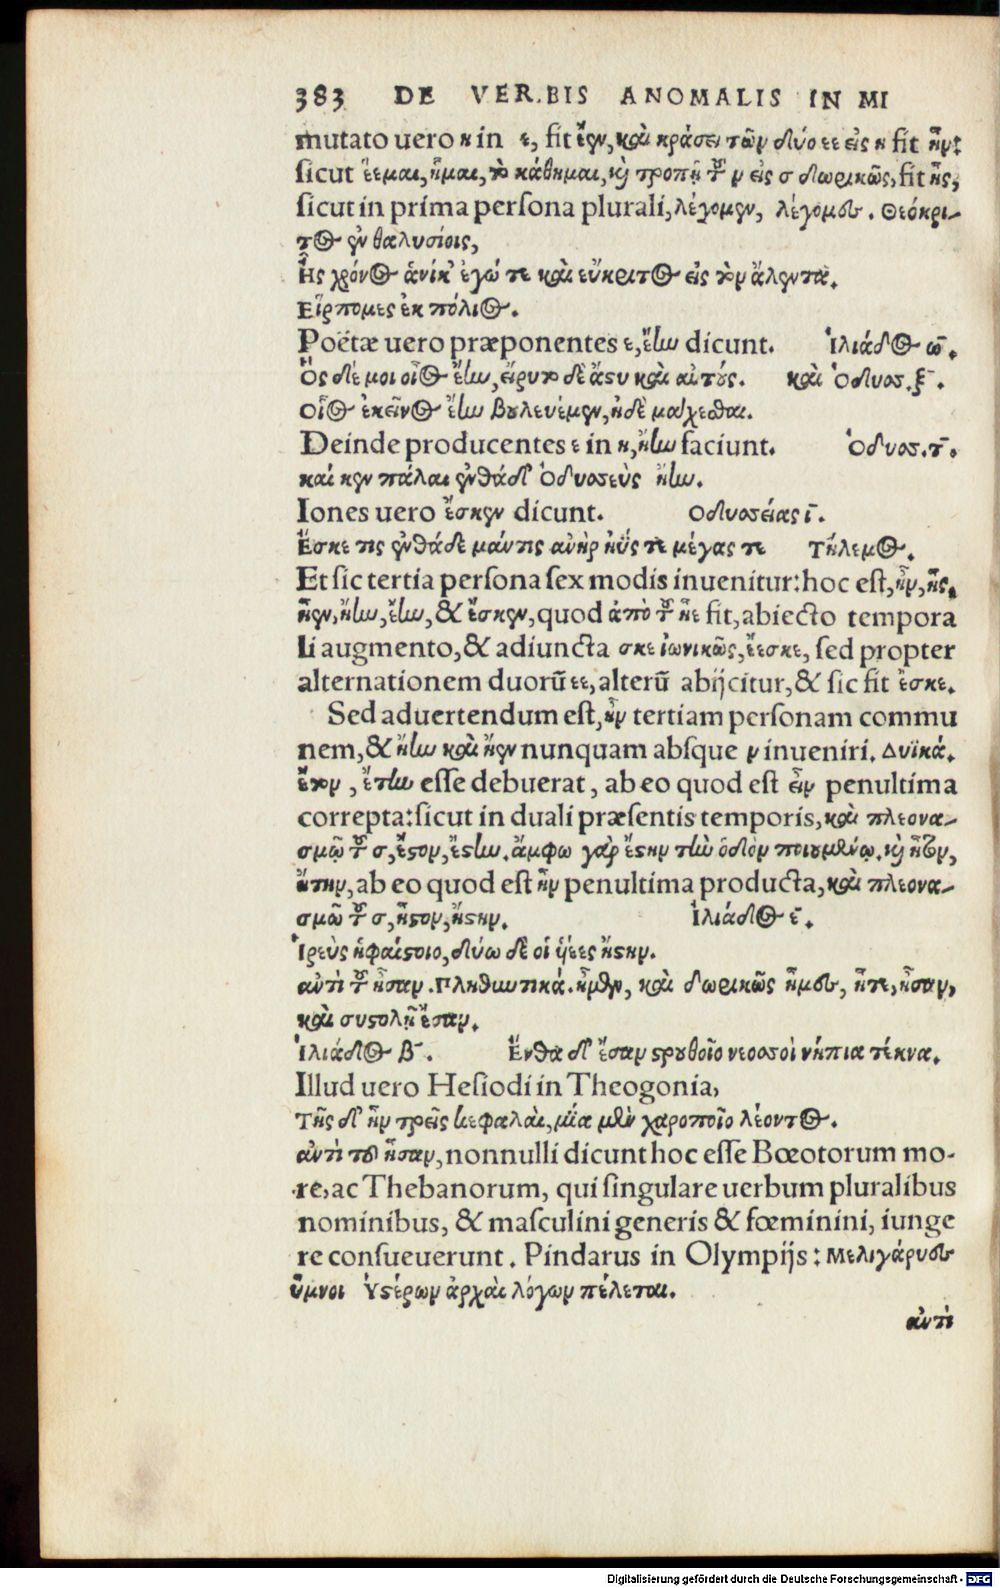 383 DE VERBIS ANOMALIS IN MI
mutato uero η in ε, fit ἔεν, καὶ κράσει τῶν δύο εε εἰς η fit ἦν:
ſicut ἕεμαι, ἧμαι, τὸ κάθημαι, καὶ τροπῇ τοῦ ν εἰς σ δωρικῶς, fit ἦς,
ſicut in prima perſona plurali, λέγομεν, λέγομες. Θεόκρι-
τος ἐν θαλυσίοις,
Ἦς χρόνος ἁνίκ' ἐγώ τε καὶ εὔκριτος εἰς τὸν ἅλεντα.
Εἵρπομες ἐκ πόλιος.
Poëtæ uero præponentes ε, ἔην dicunt. Ἰλιάδος ω̄.
Ὅς δέ μοι οἶος ἔην, εἴρυτο δὲ ἄστυ καὶ αὐτούς. καὶ Ὀδυσσ. ξ̄.
Οἷος ἐκεῖνος ἔην βουλευέμεν, ἠδὲ μάχεσθαι.
Deinde producentes ε in η, ἤην faciunt. Ὀδυσσ. τ̄.
καί κεν πάλαι ἐνθάδ' Ὀδυσσεὺς ἤην.
Iones uero ἔσκεν dicunt. Οδυσσείας ῑ.
Ἔσκε τις ἐνθάδε μάντις ανὴρ ἠΰς τε μέγας τε Τήλεμος.
Et ſic tertia perſona ſex modis inuenitur: hoc eſt, ἦν, ἦς,
ἦεν, ἤην, ἔην, & ἔσκεν, quod ἀπὸ τοῦ ἦε fit, abiecto tempora
li augmento, & adiuncta σκε ἰωνικῶς, ἔεσκε, ſed propter
alternationem duorũ εε, alterũ abijcitur, & ſic fit ἔσκε.
Sed aduertendum eſt, ἦν tertiam perſonam commu
nem, & ἤην καὶ ἦεν nunquam abſque ν inueniri. Δυϊκά.
ἔτον, ἔτην eſſe debuerat, ab eo quod eſt εἶν penultima
correpta: ſicut in duali præſentis temporis, καὶ πλεονα-
σμῷ τοῦ σ, ἔστον, ἔστην. ἄμφω γὰρ ἔστην τὴν ὁδὸν ποιουμένω. καὶ ἦτον,
ἤτην, ab eo quod eſt ἦν penultima producta, καὶ πλεονα-
σμῷ τοῦ σ, ἦστον, ἤστην. Ἰλιάδος ε̄.
Ἱρεὺς ἡφαίστοιο, δύω δέ οἱ ὑϊέες ἤστην.
αντὶ τοῦ ἦσαν. Πληθυντικά. ἦμεν, καὶ δωρικῶς ἦμες, ἦτε, ἦσαν,
καὶ συστολῇ ἔσαν.
Ἰλιάδος β̄. Ἔνθα δ' ἔσαν στρουθοῖο νεοσσοὶ νήπια τέκνα.
Illud uero Heſiodi in Theogonia,
Τῆς δ' ἦν τρεῖς κεφαλαὶ, μία μὲν χαροποῖο λέοντος.
αντὶ τοῦ ἦσαν, nonnulli dicunt hoc eſſe Bœotorum mo-
re, ac Thebanorum, qui ſingulare uerbum pluralibus
nominibus, & maſculini generis & fœminini, iunge
re conſueuerunt. Pindarus in Olympijs: Μελιγάρυες
ὕμνοι Ὑστέρων ἀρχαὶ λόγων πέλεται.
αντὶ
Digitalisierung gefördert durch die Deutsche Forschungsgemeinschaft - DFG